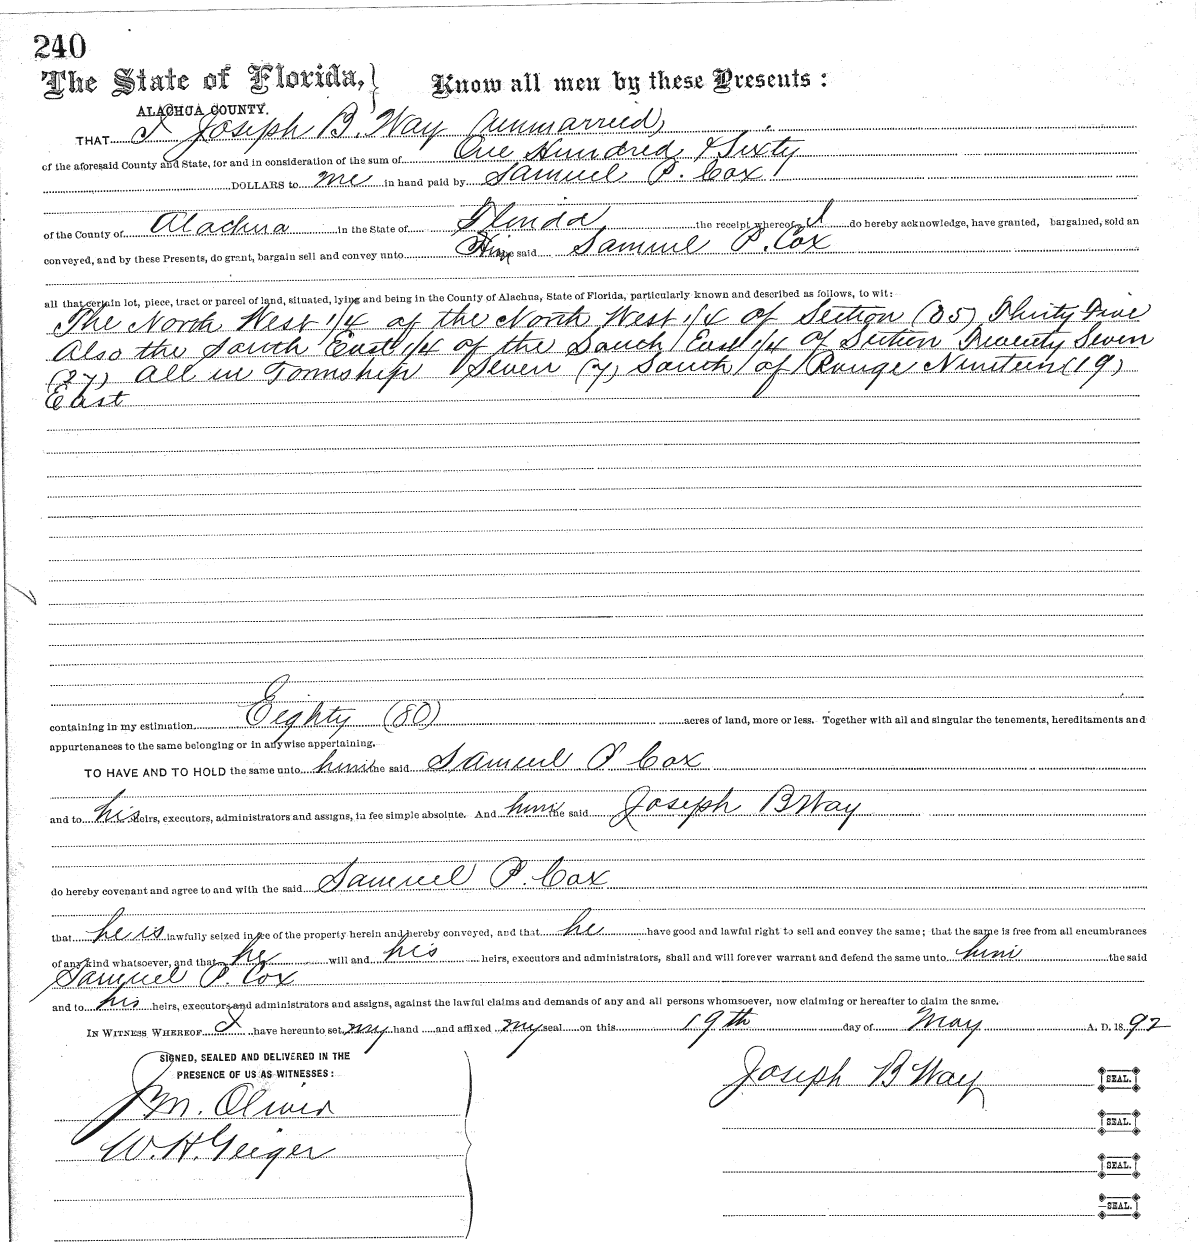 240
The State of Florida, } Know all men by these Presents :
ALACHUA COUNTY.
THAT I Joseph B. Way (unmarried)
of the aforesaid County and State, for and in consideration of the sum of One Hundred & Sixty
DOLLARS to me in hand paid by Samuel P. Cox
of the County of Alachua in the State of Florida the receipt whereof I do hereby acknowledge, have granted, bargained, sold an
conveyed, and by these Presents, do grant, bargain sell and convey unto Him the said Samuel P. Cox
all that certain lot, piece, tract or parcel of land, situated, lying and being in the County of Alachua, State of Florida, particularly known and described as follows, to wit:
The North West 1/4 of the North West 1/4 of Section (35) Thirty Five
Also the South East 1/4 of the South East 1/4 of Section Twenty Seven
(27) All in Township Seven (7) South of Range Nineteen (19)
East
containing in my estimation Eighty (80) acres of land, more or less. Together with all and singular the tenements, hereditaments and
appurtenances to the same belonging or in anywise appertaining.
TO HAVE AND TO HOLD the same unto him the said Samuel P Cox
and to his heirs, executors, administrators and assigns, in fee simple absolute. And him the said Joseph B Way
do hereby covenant and agree to and with the said Samuel P. Cox
that he is lawfully seized in fee of the property herein and hereby conveyed, and that he have good and lawful right to sell and convey the same; that the same is free from all encumbrances
of any kind whatsoever, and that he will and his heirs, executors and administrators, shall and will forever warrant and defend the same unto him the said
Samuel P. Cox
and to his heirs, executors and administrators and assigns, against the lawful claims and demands of any and all persons whomsoever, now claiming or hereafter to claim the same.
IN WITNESS WHEREOF I have hereunto set my hand and affixed my seal on this 19th day of May A. D. 1892
SIGNED, SEALED AND DELIVERED IN THE
PRESENCE OF US AS WITNESSES:
Joseph B Way SEAL.
J M. Oliver
SEAL.
W. H. Geiger
SEAL.
SEAL.